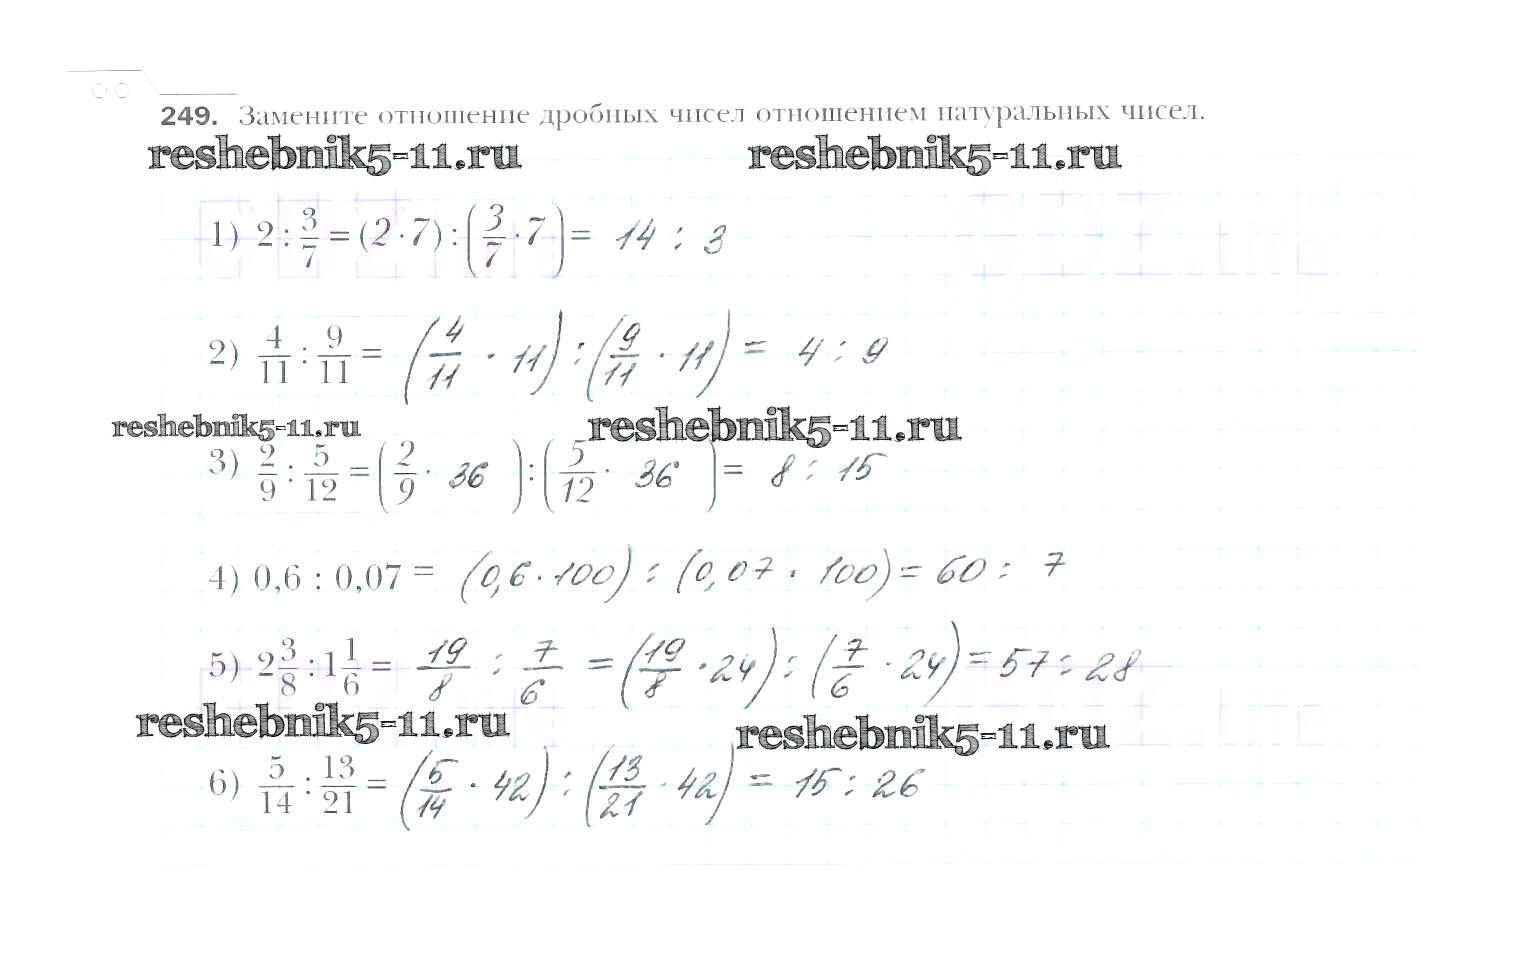 249. Замените отношение дробных чисел отношением натуральных чисел.
reshebnik5-11.ru reshebnik5-11.ru
1) 2 : 3/7 = (2 · 7) : (3/7 · 7) = 14 : 3
2) 4/11 : 9/11 = (4/11 · 11) : (9/11 · 11) = 4 : 9
reshebnik5-11.ru reshebnik5-11.ru
3) 2/9 : 5/12 = (2/9 · 36) : (5/12 · 36) = 8 : 15
4) 0,6 : 0,07 = (0,6 · 100) : (0,07 · 100) = 60 : 7
5) 2 3/8 : 1 1/6 = 19/8 : 7/6 = (19/8 · 24) : (7/6 · 24) = 57 : 28
reshebnik5-11.ru reshebnik5-11.ru
6) 5/14 : 13/21 = (5/14 · 42) : (13/21 · 42) = 15 : 26